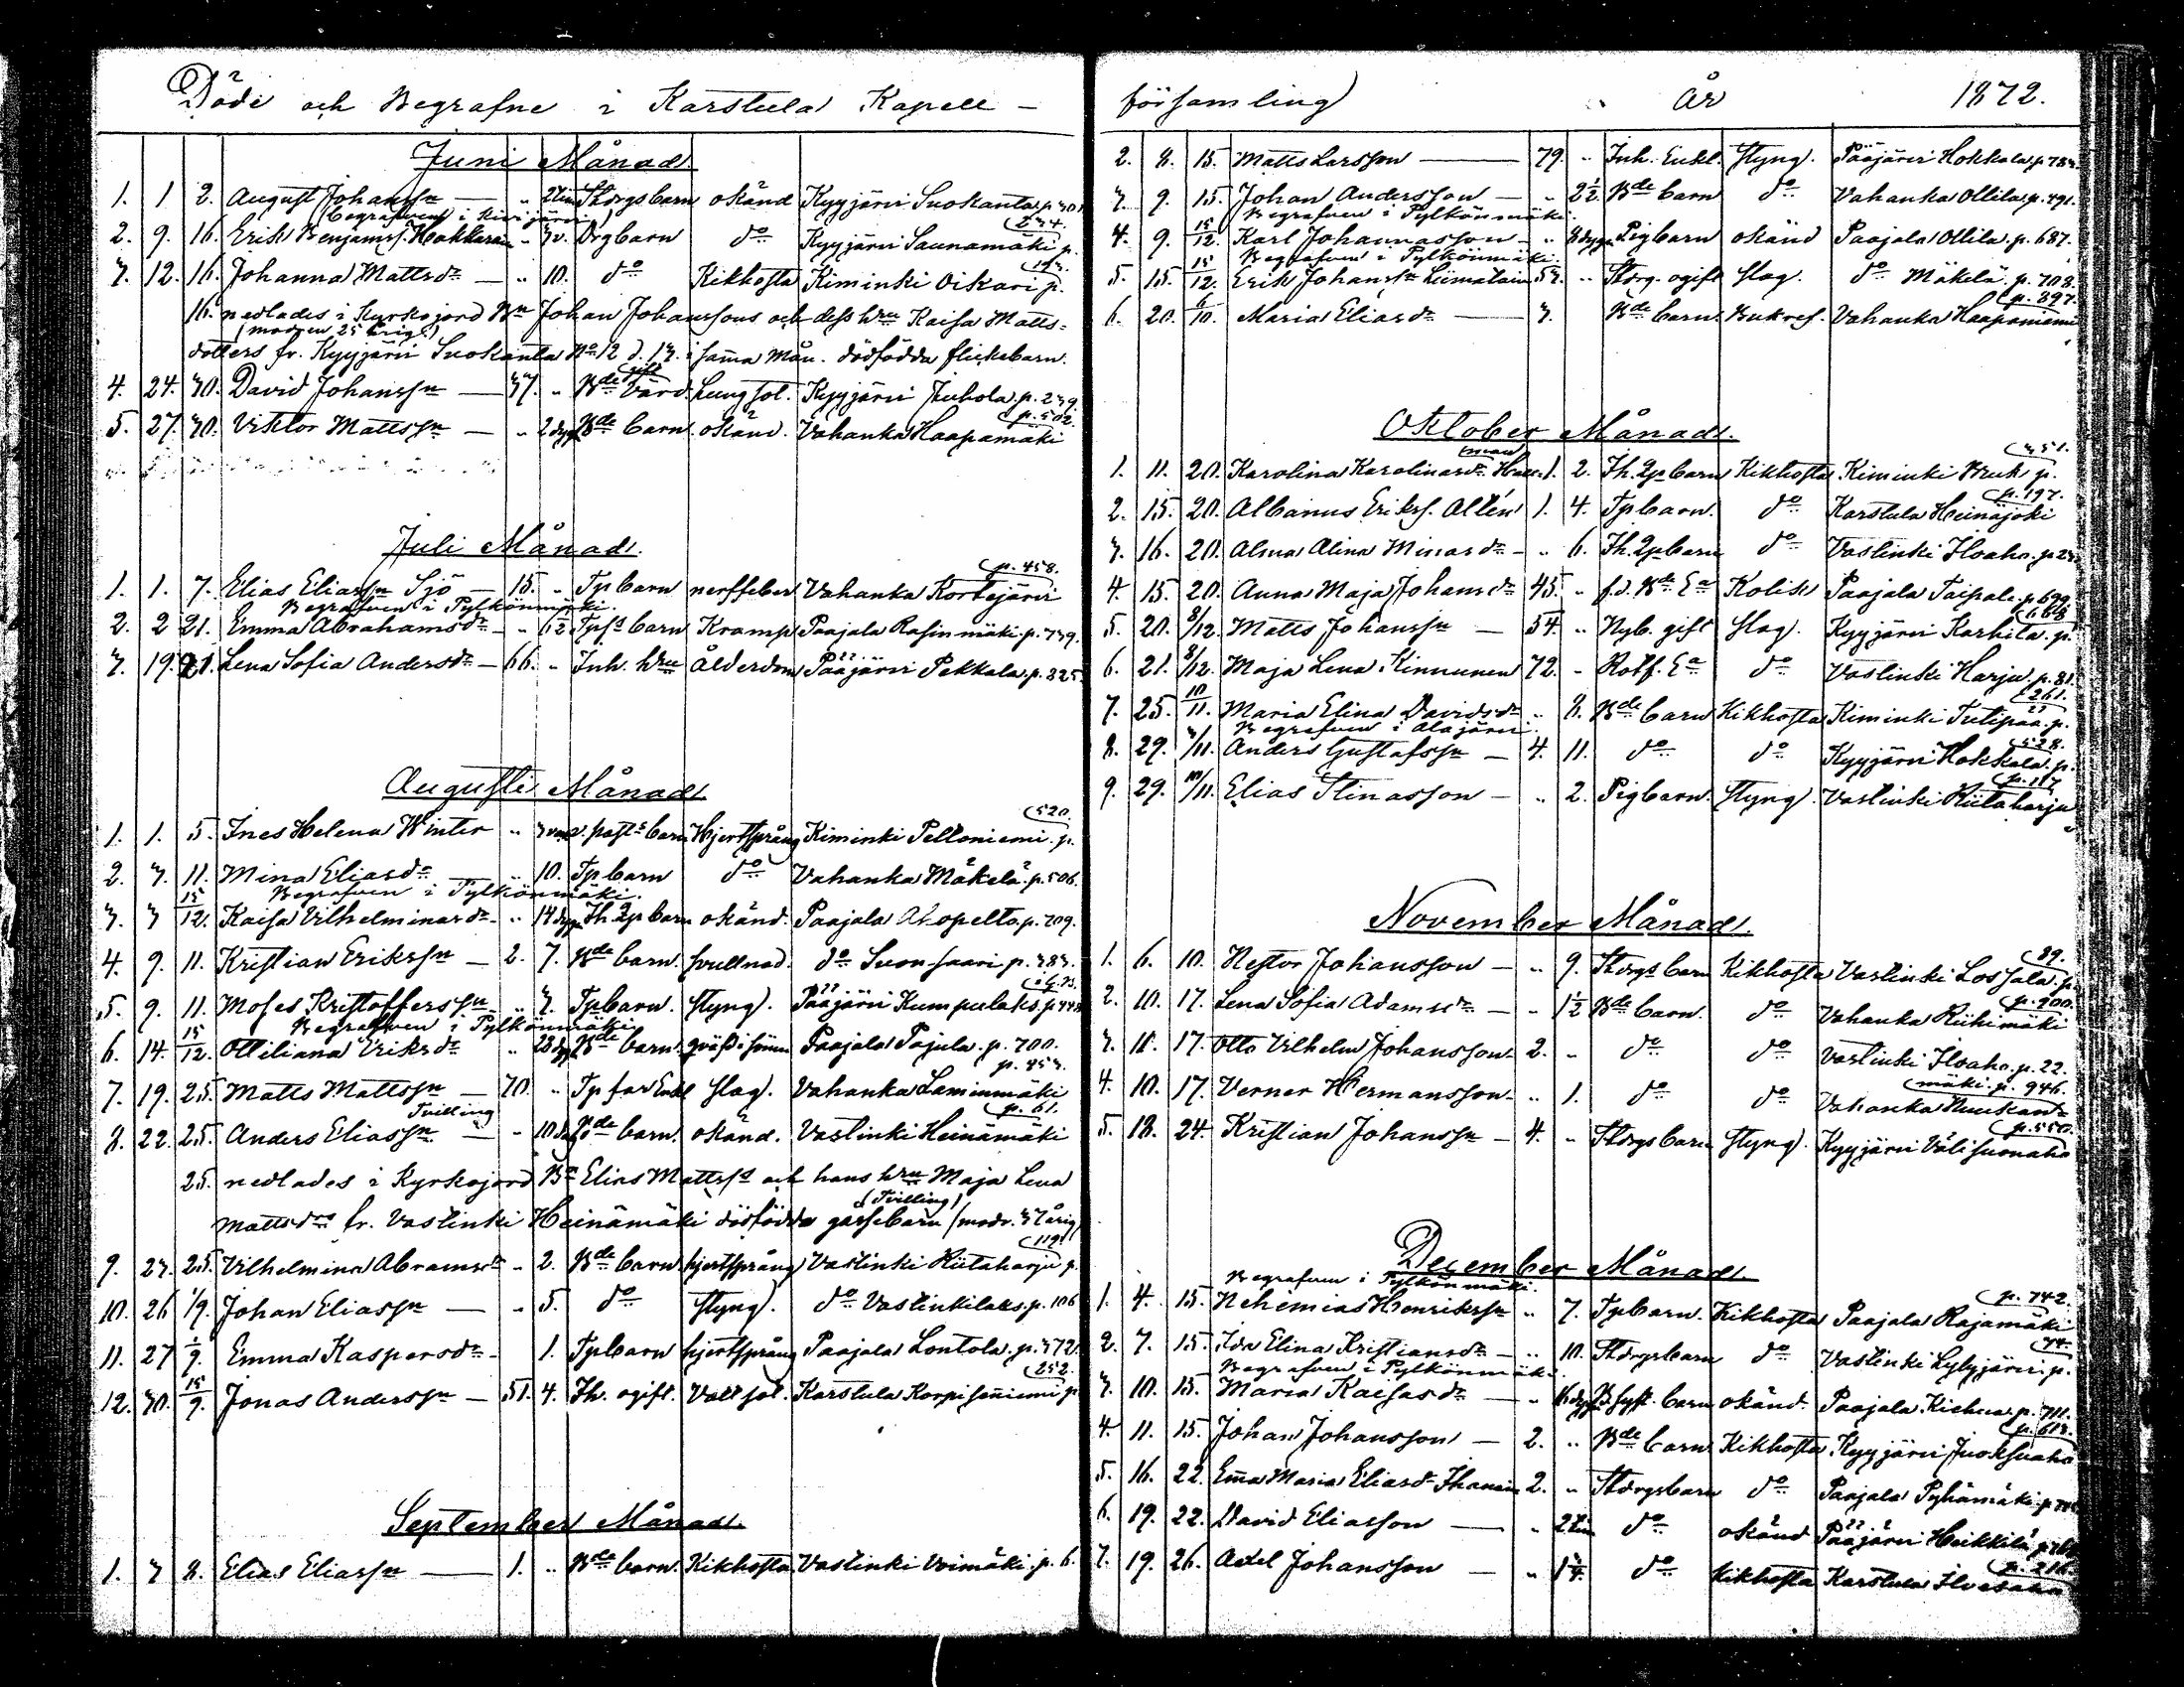 Döde och Begrafne i Karstula Kapell-
Juni Månad.
1. 1. 2. August Johanss:n — " 2 tim Stdrgs barn okänd Kyyjärvi Suokanta p. 301.
(begrafven i Kivijärvi)
2. 9. 16. Erik Benjamss. Hakkarain " 3 v. Drgbarn d:o Kyyjärvi Saunamäki p. 234.
3. 12. 16. Johanna Mattsd:r — " 10. d:o Kikhosta Kiminki Oikari p. 193.
16. nedlades i Kyrkojord B:n Johan Johanssons och dess h:ru Kaisa Matts-
(modren 25 årig)
dotters fr. Kyyjärvi Suokanta N:o 12 d. 13. i samma mån. dödfödda flickebarn.
4. 24. 30. David Johanss:n — 37. " B:de gift värd. Lungsot. Kyyjärvi Juhola. p. 239.
5. 27. 30. Viktor Mattss:n — " 2 dyg B:de barn okänd. Vahanka Haapamäki p. 502.
Juli Månad.
1. 1. 7. Elias Eliass:n Sjö — 15. " Tp barn nerffeber Vahanka Kortejärvi p. 458.
Begrafven i Pylkönmäki.
2. 2. 21. Emma Abrahamsd:r — " 6½ Tpfs barn Kramp Paajala Rasinmäki p. 739.
3. 19. 21. Lena Sofia Andersd:r — 66. " Inh. h:ru Ålderdom Pääjärvi Pekkala p. 825.
Augusti Månad
1. 1. 5. Ines Helena Winter " 3 v. past:s barn Hjertsprång Kiminki Peltoniemi p. 520.
2. 3. 11. Mina Eliasd:r " 10. Tp barn d:o Vahanka Mäkelä p. 506.
Begrafven i Pylkönmäki.
3. 3. 15/12. Kaisa Vilhelminasd:r " 14 dyg Th. Qp barn okänd. Paajala Ahopelto p. 709.
4. 9. 11. Kristian Erikss:n — 2. 7. B:de barn svullnad. d:o Suonsaari p. 383.
5. 9. 11. Moses Kristofferss:n " 3. Tp barn. styng. Pääjärvi Kumpulaks. p. 443
Begrafven i Pylkönmäki
6. 14. 15/12. Ottiliana Eriksd:r " 28 dyg B:de barn Paajala Pajula. p. 700.
7. 19. 25. Matts Mattss:n — 70. " Tp far Enkl slag. Vahanka Laminmäki p. 453.
Tvilling
8. 22. 25. Anders Eliass:n — " 10 B:de barn. okänd. Vastinki Heinämäki p. 61.
25. nedlades i Kyrkojord B:n Elias Mattss:s och hans h:ru Maja Lena
(Tvilling)
Mattsd:rs fr. Vastinki Heinämäki dödfödda gåssebarn (modr. 37 årig)
9. 23. 25. Vilhelmina Abramsd:r " 2. B:de barn hjertsprång Vastinki Riitaharju p. 119.
10. 26. 1/9. Johan Eliass:n — " 5. d:o styng. d:o Vastinkilaks. p. 106
11. 27. 1/9. Emma Kaspersd:r — 1. Tp barn hjertsprång Paajala Lontola. p. 372.
12. 30. 15/9. Jonas Anderss:n — 51. 4. Th. ogift. Vattsot. Karstula Korpiseniemi p. 252.
September Månad.
1. 3. 8. Elias Eliass:n — 1. " B:de barn. Kikhosta Vastinki Voimäki. p. 6.
församling År 1872.
2. 8. 15. Matts Larsson — 79. " Inh. Enkl. styng. Pääjärvi Hokkala p. 783.
3. 9. 15. Johan Andersson — " 2½ B:de barn d:o Vahanka Ollila p. 491.
Begrafven i Pylkönmäki.
4. 9. 15/12. Karl Johannasson — " 8 dygn Pigbarn okänd Paajala Ollila p. 687.
Begrafven i Pylkönmäki.
5. 15. 15/12. Erik Johanss:n Liimatain 53. " Stdrg. ogift slag. d:o Mäkelä p. 708.
6. 20. 6/10. Maria Eliasd:r — 3. B:de barn. Bukref. Vahanka Haapaniemi p. 897.
Oktober Månad.
1. 11. 20. Karolina Karolinasd:r 1. 2. Th. Qp barn Kikhosta Kiminki Bruk p. 351.
2. 15. 20. Albanus Erikss. Altén 1. 4. Tp barn. d:o Karstula Heinäjoki p. 197.
3. 16. 20. Alma Alina Minasd:r — " 6. Th. Qp barn d:o Vastinki Iloaho p. 23
4. 15. 20. Anna Maja Johansd:r 45. " f.d. B:de E:a Kolik Paajala Taipale p. 699
5. 20. 8/12. Matts Johanss:n — 54. " Nyb. gift slag. Kyyjärvi Karhila. p. 668
6. 21. 8/12. Maja Lena Kinnunen 72. " Rotf. E:a d:o Vastinki Harju p. 81.
7. 25. 10/11. Maria Elina Davidsd:r " 8. B:de barn Kikhosta Kiminki Tutipää p. 261.
Begrafven i Alajärvi.
8. 29. 3/11. Anders Gustafss:n — 4. 11. d:o d:o Kyyjärvi Hokkala p. 528.
9. 29. 10/11. Elias Stinasson — " 2. Pigbarn. styng. Vastinki Riitaharju p. 117.
November Månad.
1. 6. 10. Nestor Johansson — " 9. Stdrgs barn Kikhosta Vastinki Lossala p. 89.
2. 10. 17. Lena Sofia Adamsd:r — " 1½ B:de barn. d:o Vahanka Riihimäki p. 200.
3. 11. 17. Otto Vilhelm Johansson 2. " d:o d:o Vastinki Iloaho. p. 22.
4. 10. 17. Verner Hermansson — " 1. d:o d:o Vahanka Nuiskan- mäki. p. 946.
5. 18. 24. Kristian Johanss:n — 4. " Stdrgs barn styng. Kyyjärvi Välisuonaho p. 550.
December Månad.
Begrafven i Pylkönmäki.
1. 4. 15. Nehemias Henrikss:n " 7. Tp barn. Kikhosta Paajala Rajamäki p. 742.
2. 7. 15. Ida Elina Kristiansd:r — " 10. Stdrgs barn d:o Vastinki Lylyjärvi p. 74.
Begrafven i Pylkönmäki.
3. 10. 15. Maria Kaisasd:r — " 16 dyg barn okänd. Paajala Kiehua p. 711.
4. 11. 15. Johan Johansson — 2. " B:de barn Kikhosta Kyyjärvi Juoksuaho p. 613.
5. 16. 22. Ema Maria Eliasd:r Ihanain 2. " Stdrgs barn d:o Paajala Pyhämäki p.
6. 19. 22. David Eliasson — " 2 tim d:o okänd Pääjärvi Heikkilä p.
7. 19. 26. Axel Johansson — " 1¾. d:o Kikhosta Karstula Ilvesaho p. 216.